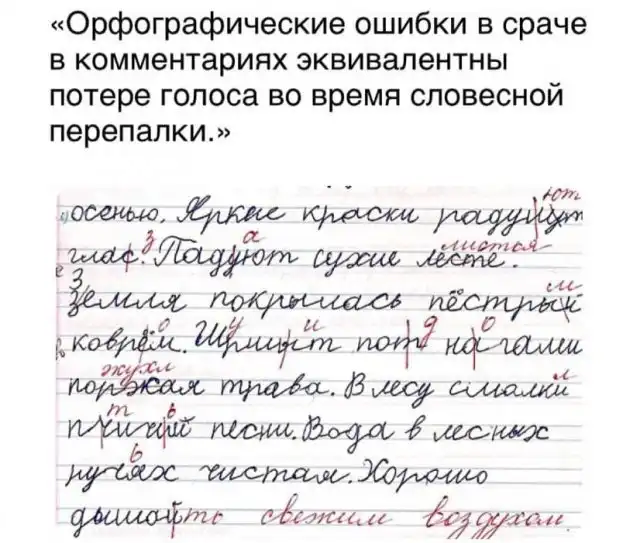 «Орфографические ошибки в сраче
в комментариях эквивалентны
потере голоса во время словесной
перепалки.»
ют
осенью. Яркие краски радуют
з а листья
глас. Падуют сухие лесте.
З м
земля покрылась пёстрый
о у и д о
коврём. Шрмит пот нагами
жухл
поржкая трава. В лесу смалки л
т ь
пчичй песни. Вода в лесных
ь
ручях чистая. Хорошо
дышоть свежим воздухом